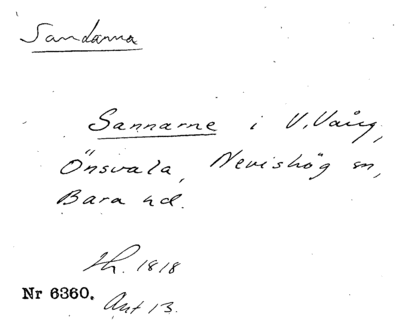 Sandarna
Sannarne i V. Vång,
Önsvala, Nevishög sn,
Bara hd.
Sk. 1818
Nr 6360. Akt 13.